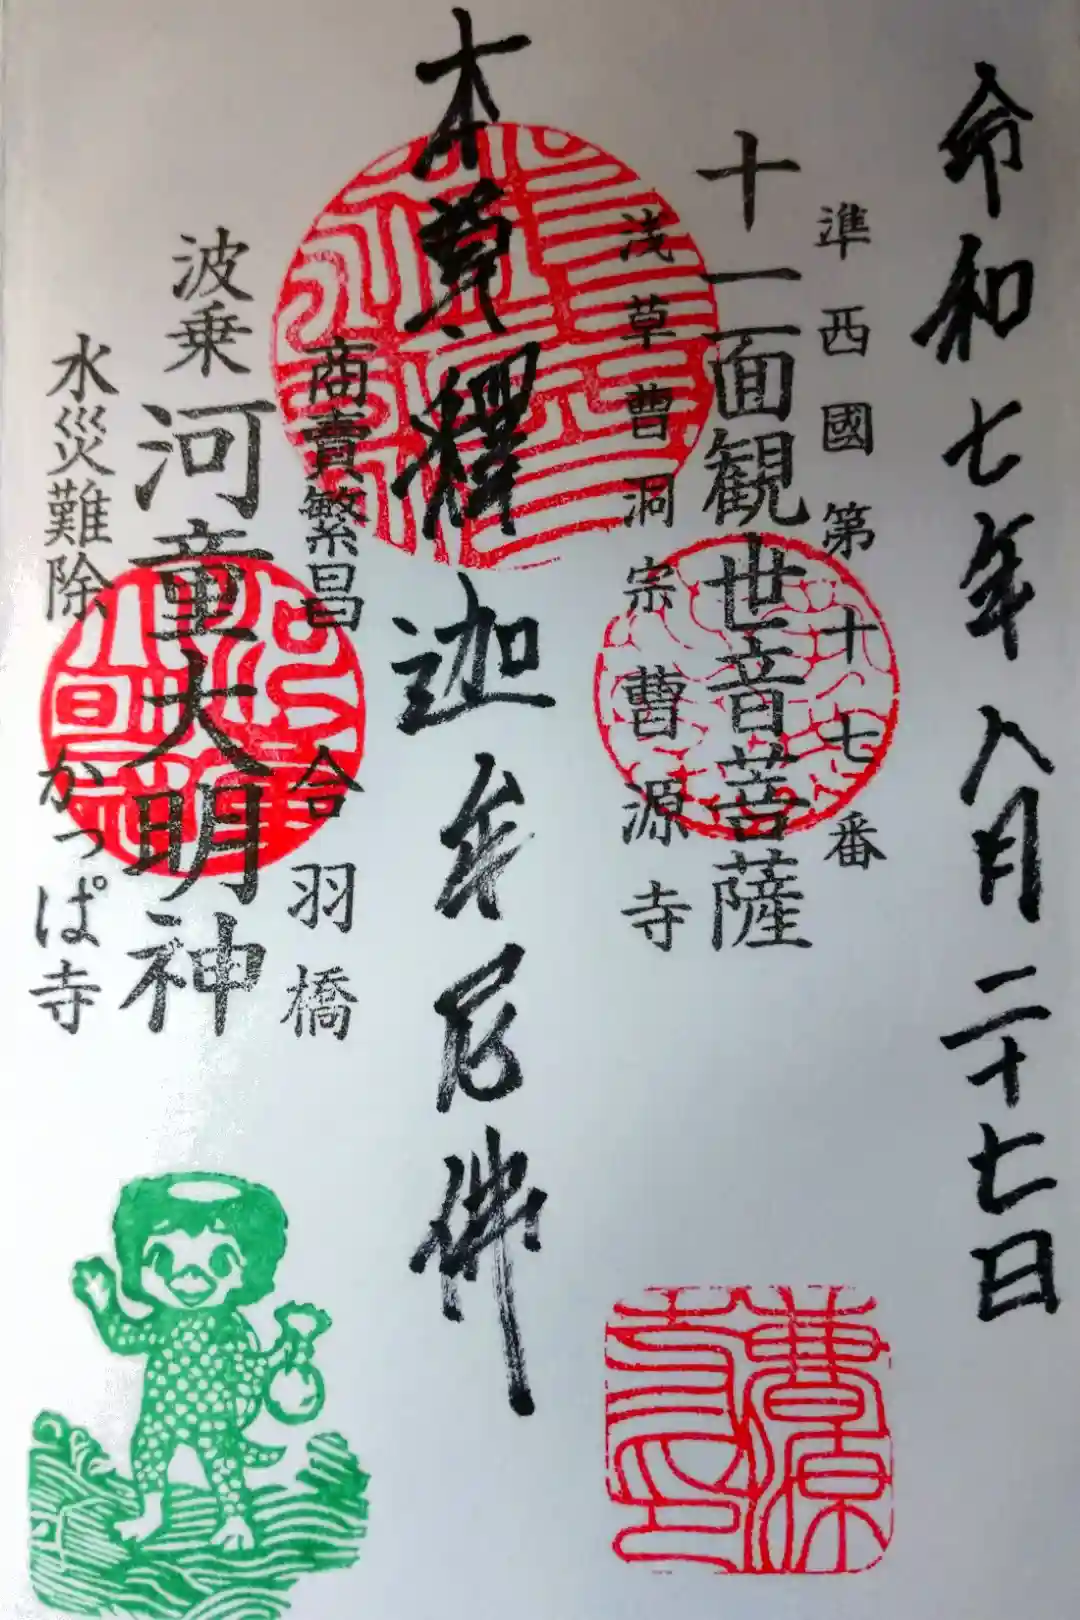 令和七年八月二十七日
準西國第十七番
十一面観世音菩薩
浅草曹洞宗曹源寺
本尊釋迦牟尼佛
商賣繁昌
合羽橋
波乗河童大明神
水災難除
かっぱ寺
曹源寺印